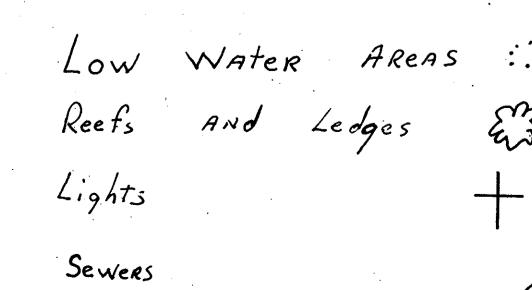 Low Water Areas
Reefs and Ledges
Lights
Sewers